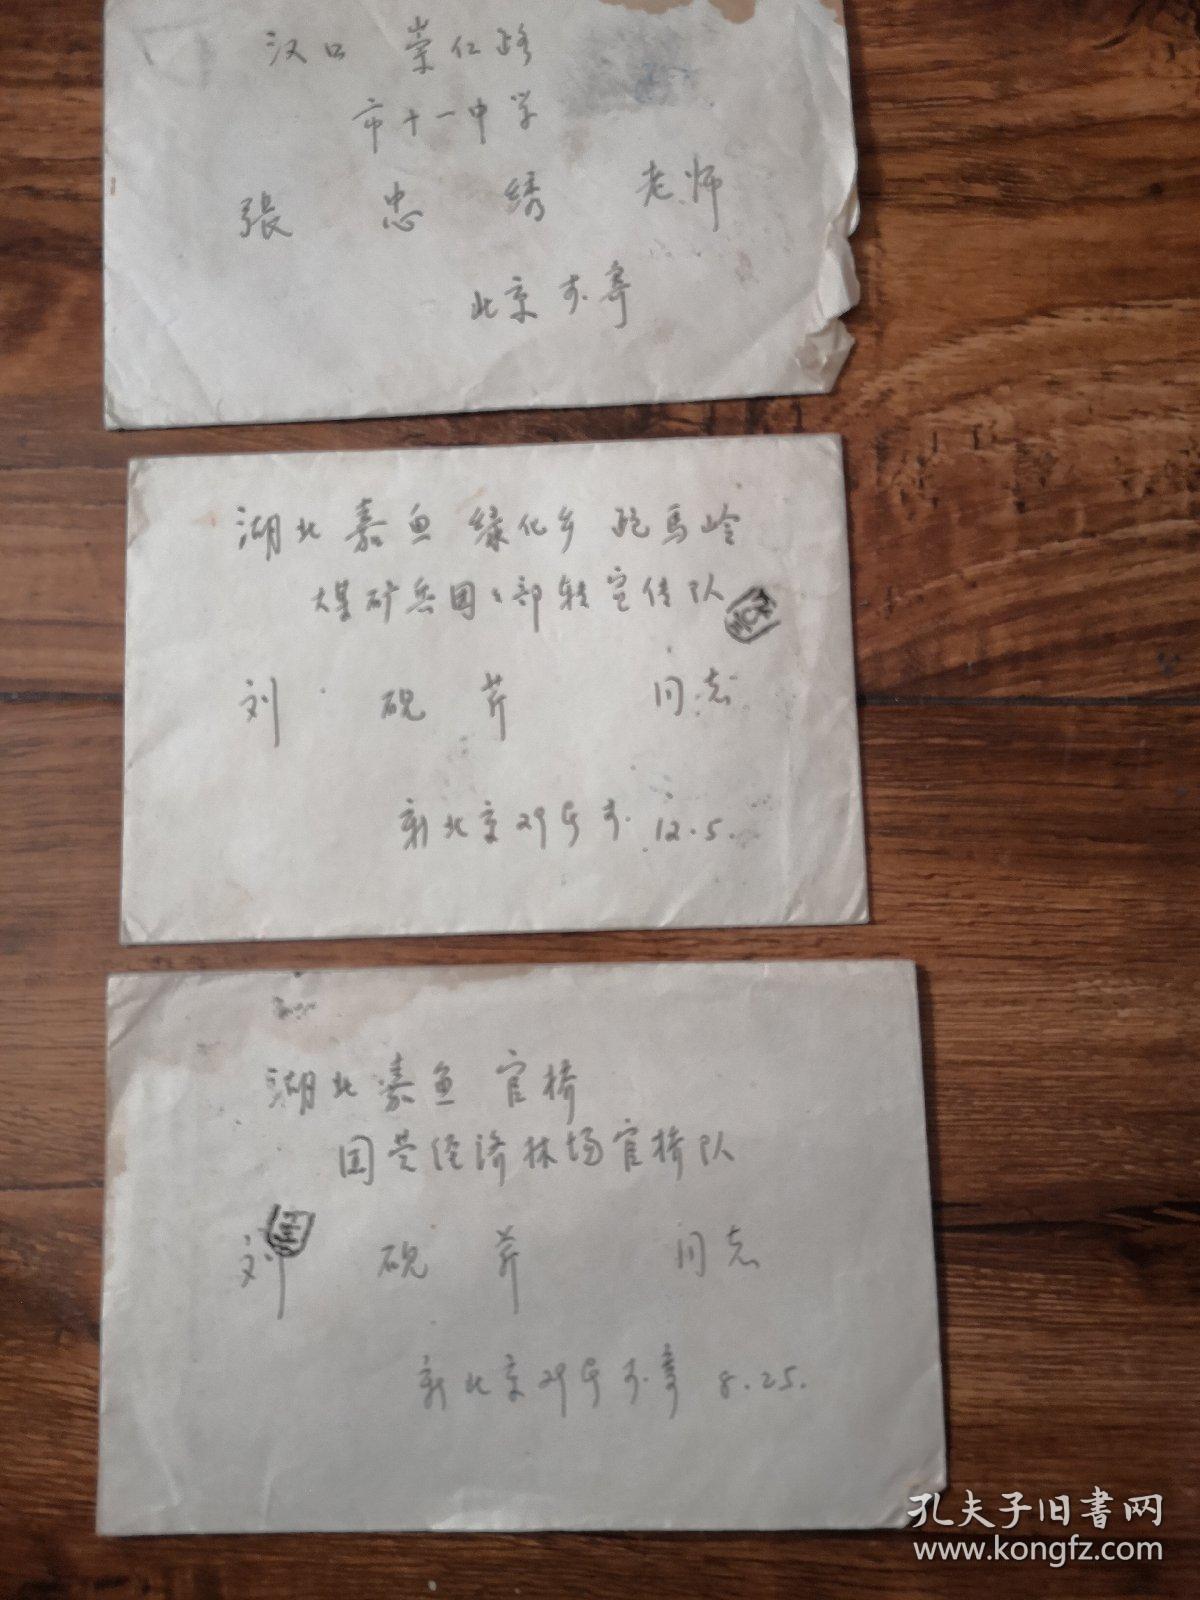 汉口 崇仁路
市十一中学
張 忠 绣 老师
北京 寄
湖北 嘉鱼 绿化乡 跑馬岭
煤矿兵团 部转宣传队
刘 砚 芹 同志
新北京 29 12.5.
湖北 嘉鱼 官桥
国营经济林场官桥队
刘 砚 芹 同志
新北京 29 寄 8.25.
孔夫子旧書网
www.kongfz.com